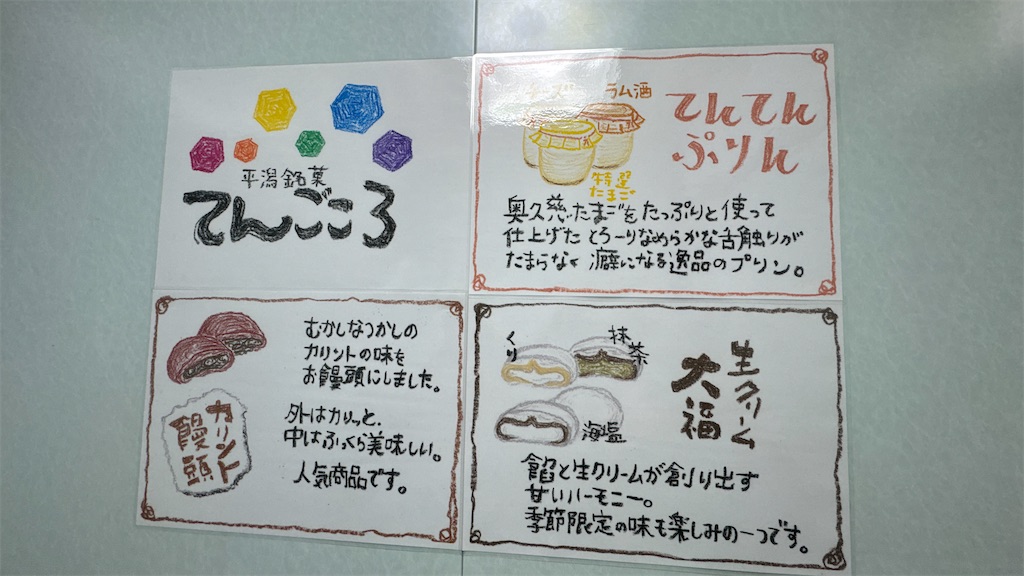 平潟銘菓
てんごころ
チーズ
ラム酒
特選
たまご
てんてん
ぷりん
奥久慈たまごをたっぷりと使って
仕上げたとろーりなめらかな舌触りが
たまらなく癖になる逸品のプリン。
カリント
饅頭
むかしなつかしの
カリントの味を
お饅頭にしました。
外はカリッと、
中はふっくら美味しい。
人気商品です。
くり
抹茶
海塩
生クリーム
大福
餡と生クリームが創り出す
甘いハーモニー。
季節限定の味も楽しみの一つです。